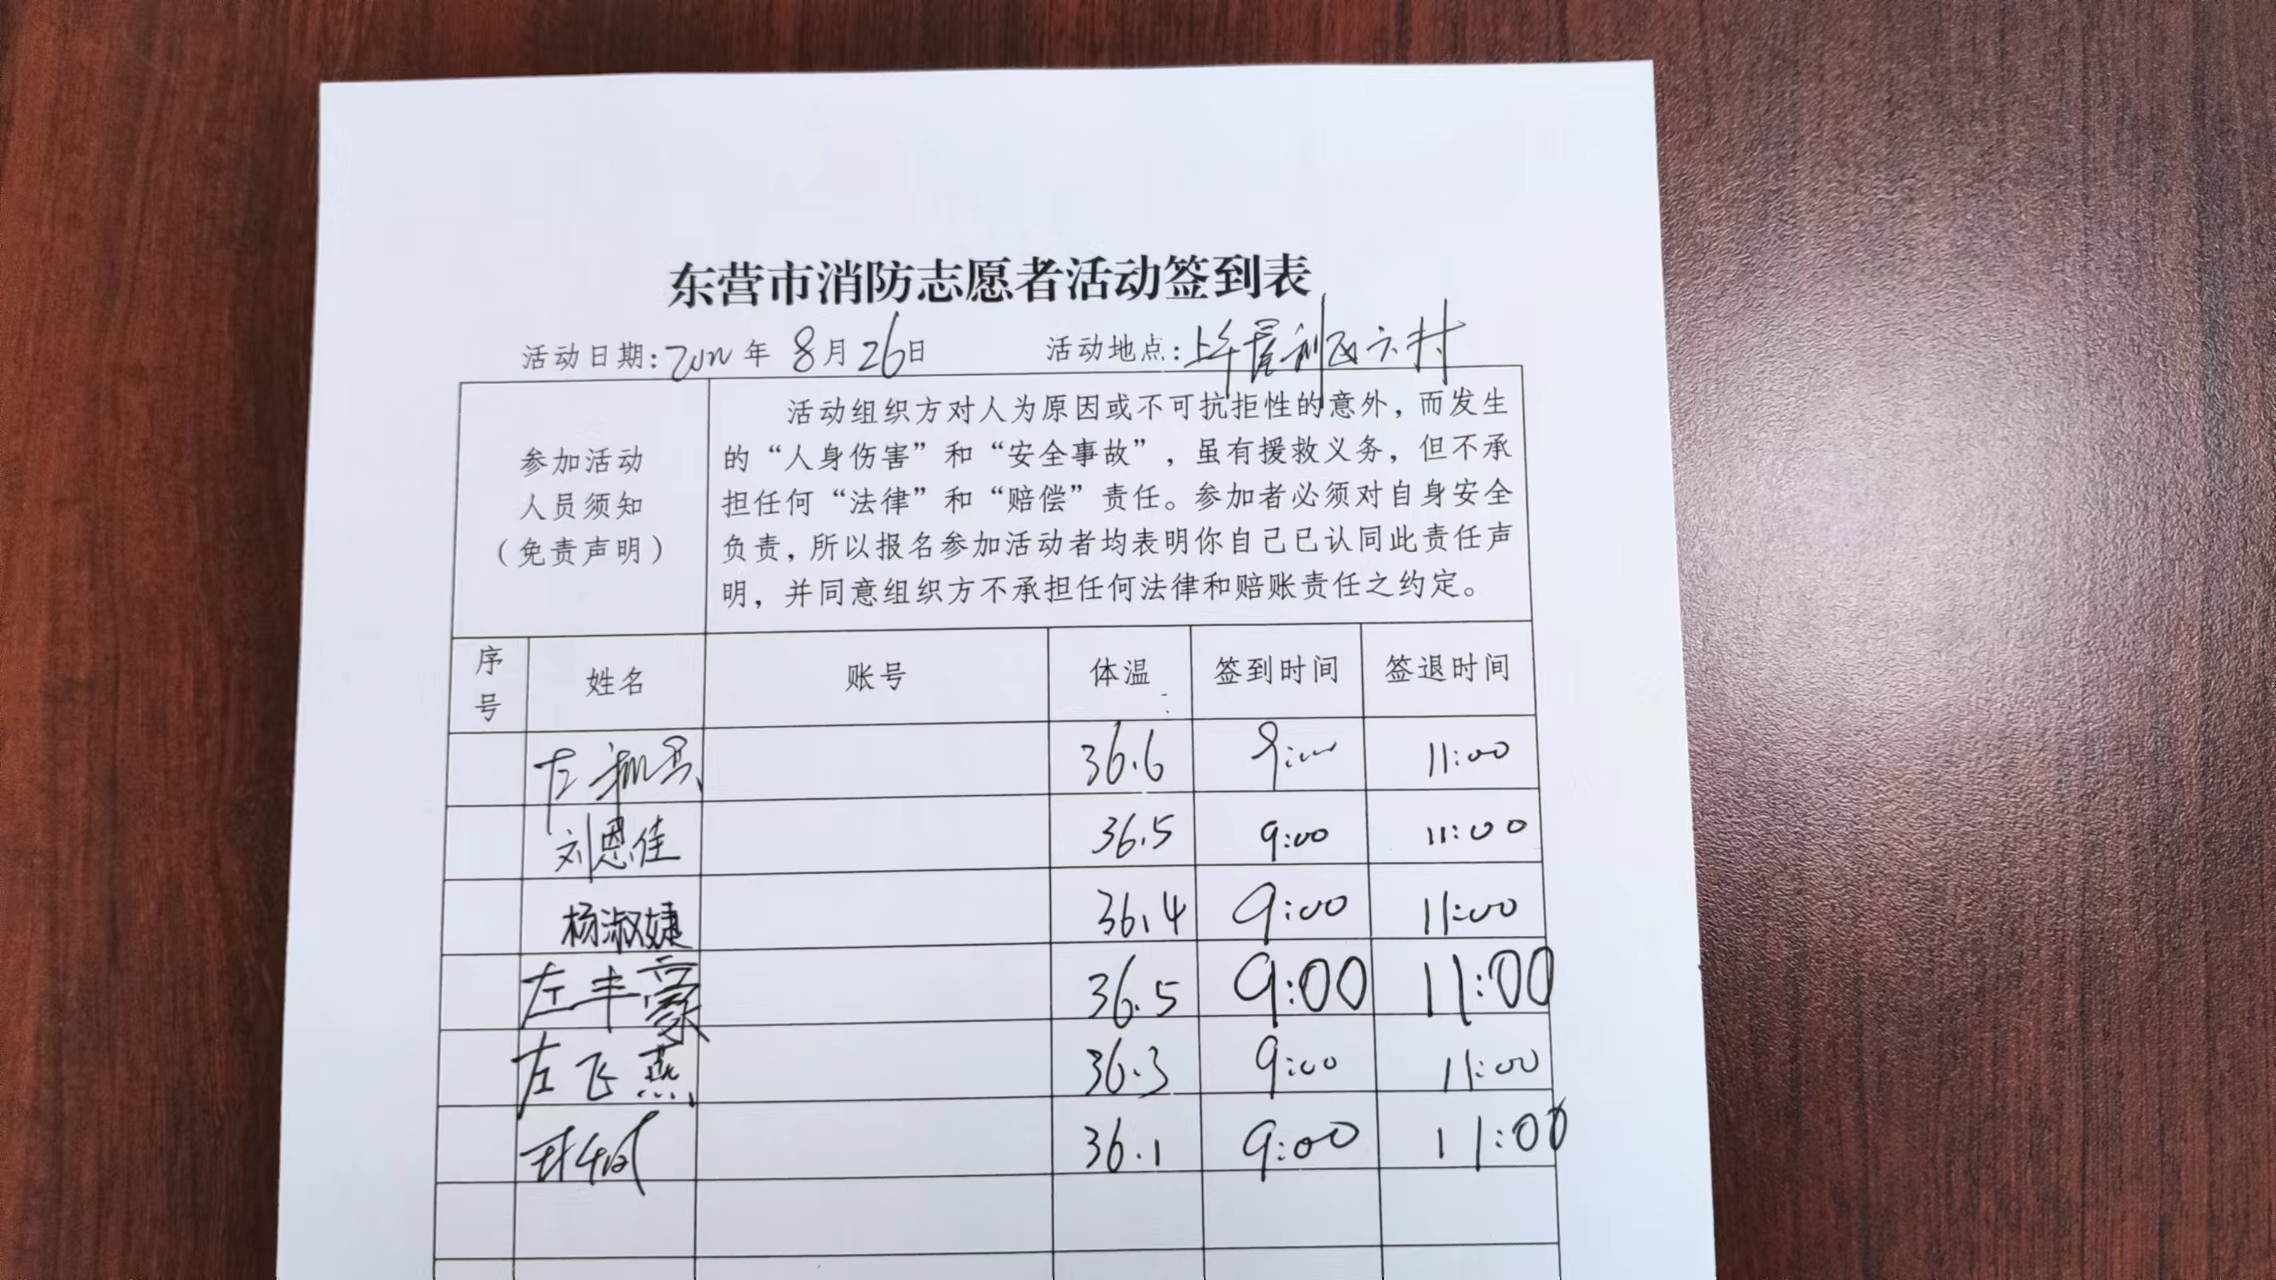 东营市消防志愿者活动签到表
活动日期：2022年 8月26日 活动地点：
参加活动
人员须知
（免责声明）
活动组织方对人为原因或不可抗拒性的意外，而发生
的“人身伤害”和“安全事故”，虽有援救义务，但不承
担任何“法律”和“赔偿”责任。参加者必须对自身安全
负责，所以报名参加活动者均表明你自己已认同此责任声
明，并同意组织方不承担任何法律和赔账责任之约定。
序号 姓名 账号 体温 签到时间 签退时间
左 36.6 9:00 11:00
刘恩佳 36.5 9:00 11:00
杨淑婕 36.4 9:00 11:00
左丰豪 36.5 9:00 11:00
左飞燕 36.3 9:00 11:00
36.1 9:00 11:00